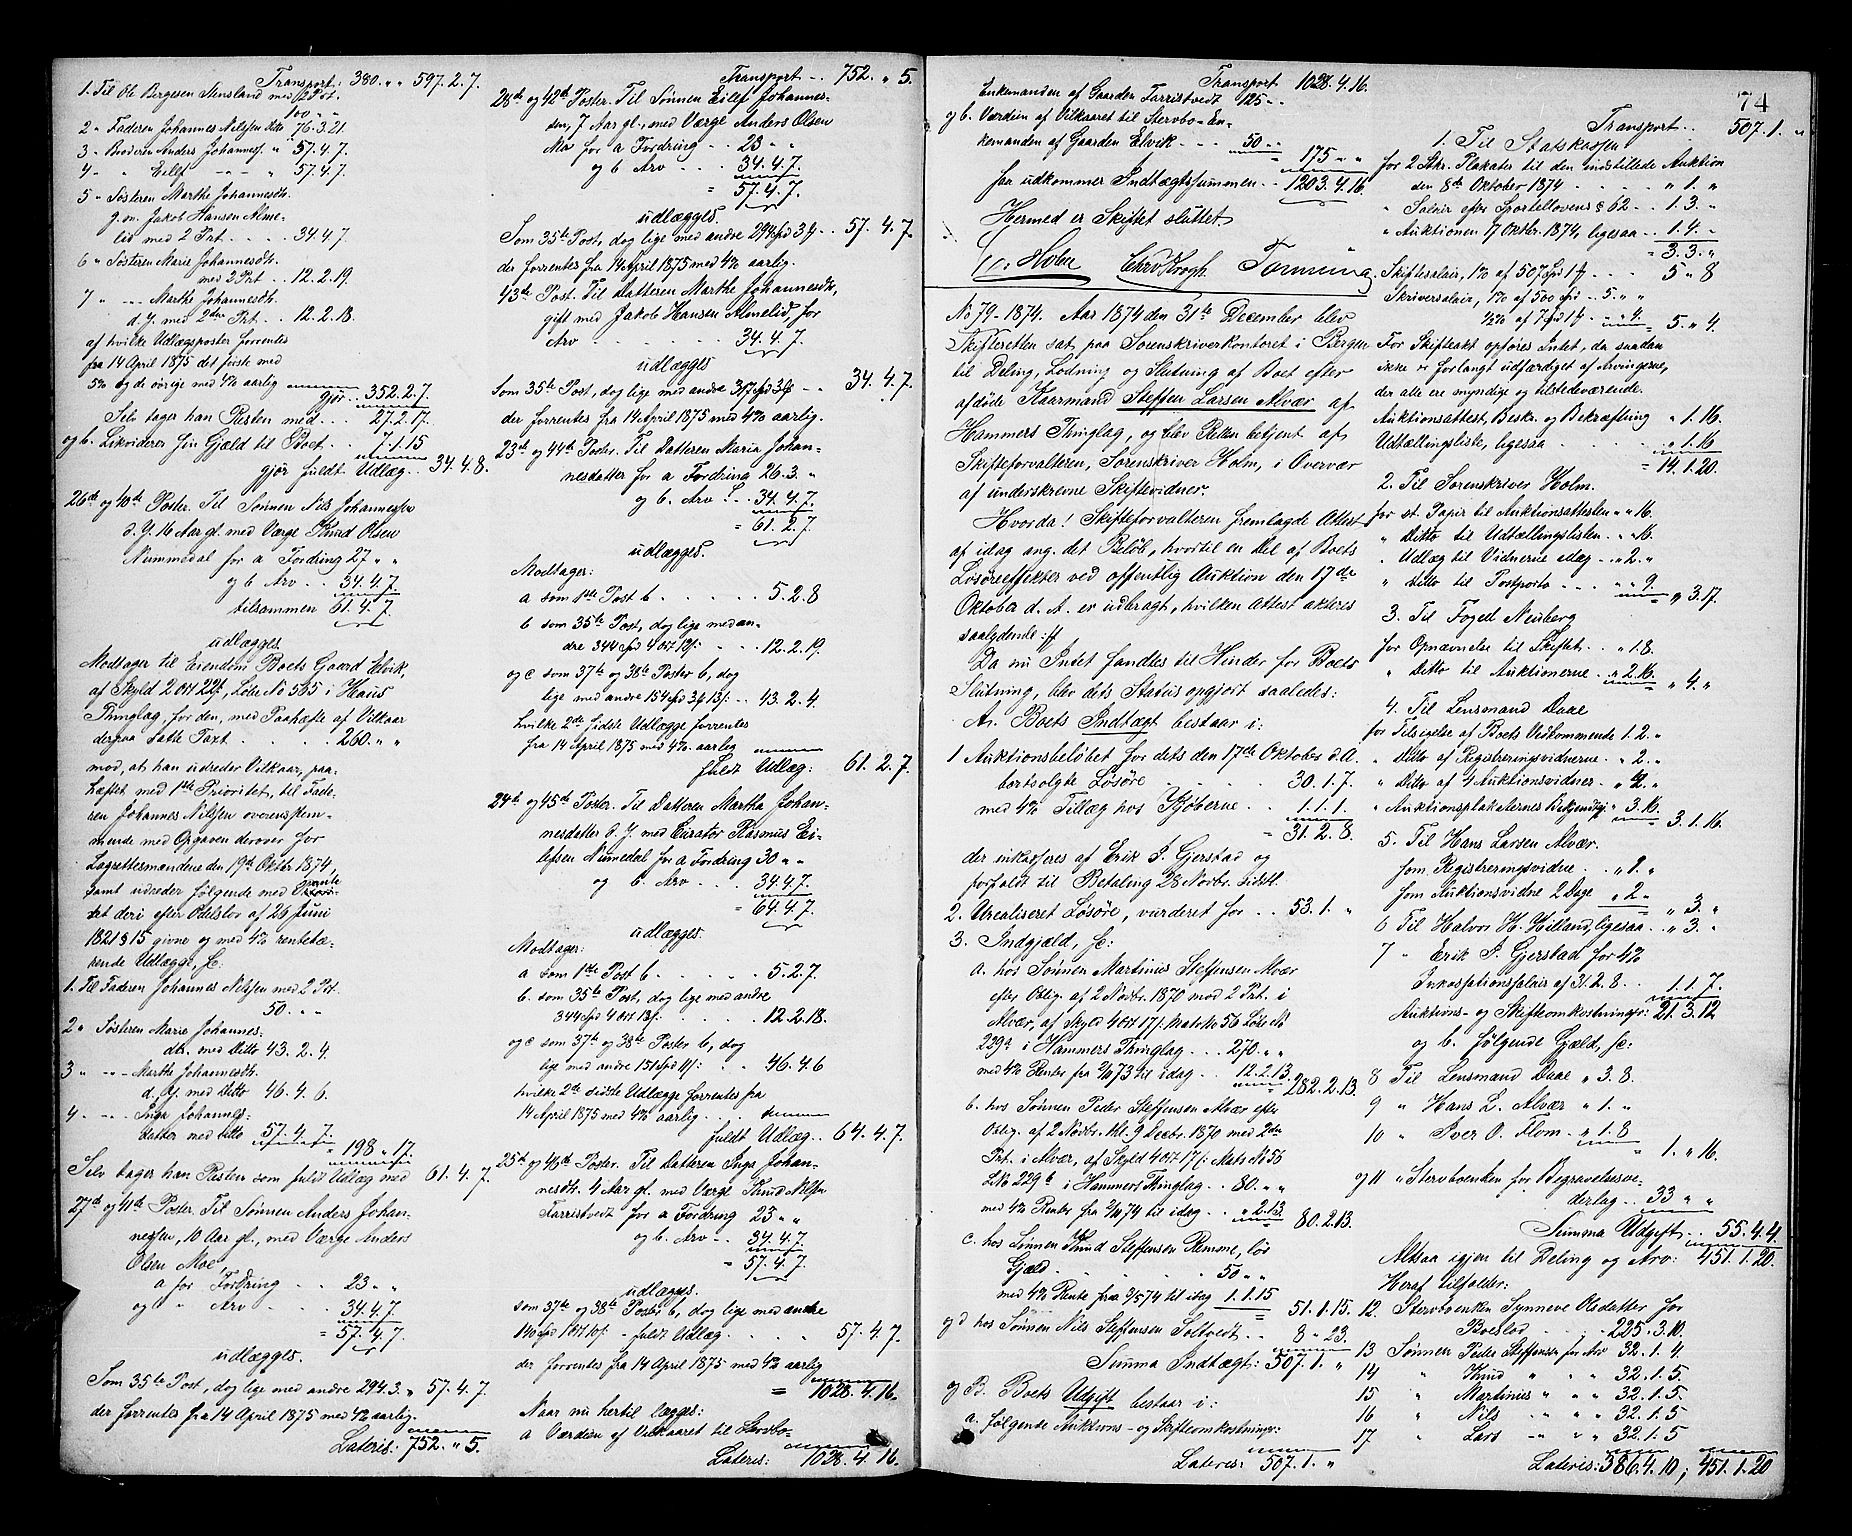 Transport: 380. „ „ 597. 2. 7.
1. Til Ole Bergesen Stensland med 1ste Prt.
100 „ „
2 „ Faderen Johannes Nilsen ditto 76. 3. 21.
3 „ Broderen Anders Johanness. „ 57. 4. 7.
4 „ „ Eilef „ „ 57. 4. 7.
5 „ Søsteren Marthe Johannesdt.
g. m. Jakob Hansen Alme-
lid med 2 Prt. . . . . 34. 4. 7.
6 „ Søsteren Marie Johannesdt.
med 2 Prt . . 12. 2. 19.
7 „ „ Marthe Johannesdt.
d. y. med 2den Prt. . . 12. 2. 18.
af hvilke Udlægsposter forrentes
fra 14 April 1875 det første med
5% og de øvrige med 4% aarlig
gjør . . 352. 2. 7.
Selv tager han Resten med . . . 27. 2. 17.
og b. Likviderer sin Gjæld til Boet . . 7. 1. 15
gjør fuldt Udlæg . . 34. 4. 8.
26de og 40de Poster. Til Sønnen Nils Johannessen
d. y. 16 Aar gl. med Værge Knud Olsen
Nummedal for a Fordring 27 „ „
og b Arv . . 34. 4. 7.
tilsammen 61. 4. 7.
udlægges.
Modtager til Eiendom Boets Gaard Elvik,
af Skyld 2 ort 22 ß, Løbe No 565 i Haus
Thinglag, for den, med Paahæfte af Vilkaar
derpaa satte Taxt . . . . . 260. „ „
mod, at han udreder Vilkaar, paa-
hæftet med 1ste Prioritet, til Fade-
ren Johannes Nilsen overensstem-
mende med Opgaven derover for
Lagrettesmændene den 19de Oktbr 1874,
samt udreder følgende med
det deri efter Odelslov af 26 Juni
1821 § 15 givne og med 4% rentebæ-
rende Udlægge, sc:
1. Til Faderen Johannes Nilsen med 2 Prt.
50. „ „
2 „ Søsteren Marie Johannes-
dtr. med Ditto 43. 2. 4.
3 „ „ Marthe Johannesdt.
d. y. med Ditto 46. 4. 6.
4 „ „ Inga Johannes-
datter med ditto 57. 4. 7.
198 „ 17.
Selv tager han Resten som fuldt Udlæg med 61. 4. 7.
27de og 41de Poster. Til Sønnen Anders Johan-
nessen, 10 Aar gl., med Værge Anders
Olsen Moe,
a for Fordring . . 23 „ „
og „ Arv . . 34. 4. 7.
= 57. 4. 7.
udlægges.
Som 35te Post, dog lige med andre 294. 3. „ 57. 4. 7.
der forrentes fra 14 April 1875 med 4% aarlig.
Lateris: 752. „ 5.
Transport . . 752. „ 5.
28de og 42de Poster. Til Sønnen Eilef Johannes-
sen, 7 Aar gl., med Værge Anders Olsen
Moe for a Fordring . . 23 „ „
og b Arv . . . 34. 4. 7.
= 57. 4. 7.
udlægges.
Som 35te Post, dog lige med andre 294 Spd 3 ß . . 57. 4. 7.
der forrentes fra 14 April 1875 med 4% aarlig.
43de Post. Til Datteren Marthe Johannesdtr,
gift med Jakob Hansen Almelid, for
Arv . . . . . . 34. 4. 7.
udlægges
Som 35te Post, dog lige med andre 317 Spd 3 ß . . 34. 4. 7.
der forrentes fra 14 April 1875 med 4% aarlig.
23de og 44de Poster. Til Datteren Maria Johan-
nesdatter for a Fordring 26. 3. „
og b. Arv . . 34. 4. 7.
= 61. 2. 7.
udlægges.
Modtager:
a som 1ste Post b . . . . . . 5. 2. 8
b som 35te Post, dog lige med an-
dre 344 Spd 4 ort 12 ß: . . 12. 2. 19.
og c som 37te og 38te Poster b, dog
lige med andre 154 Spd 3 ß 13 ß . . 43. 2. 4.
hvilke 2de sidste Udlægge forrentes
fra 14 April 1875 med 4% aarlig
fuldt Udlæg: 61. 2. 7.
24de og 45de Poster. Til Datteren Martha Johan-
nesdatter d. y. med Curator Rasmus Ei-
lefsen Nümedal for a Fordring 30 „ „
og b. Arv . . . 34. 4. 7.
= 64. 4. 7.
udlægges.
Modtager:
a som 1ste Post b . . . . . 5. 2. 7.
b. som 35te Post, dog lige med andre
344 Spd 4 ort 13 ß . . . . . 12. 2. 18.
og c som 37te og 38te Poster b, dog
lige med andre 151 Spd 11 ß: . . 46. 4. 6
hvilke 2de sidste Udlægge forrentes fra
14 April 1875 med 4% aarlig . . .
fuldt Udlæg . . 64. 4. 7.
25de og 46de Poster. Til Datteren Inga Johan-
nesdtr. 4 Aar gl. med Værge Knud Nilsen
Tarristvedt for a Fordring 23 „ „
og b. Arv . . 34. 4. 7.
= 57. 4. 7.
udlægges.
som 37te og 38te Poster b, dog lige med andre
140 Spd 1 ort 10 ß: – fuldt Udlæg . . . . 57. 4. 7.
der forrentes fra 14 April 1875 med 4% aarlig
= 1028. 4. 16.
Naar nu hertil lægges:
a Værdien af Vilkaaret til Stervbo-
Lateris: 1028. 4. 16.
Transport 1028. 4. 16.
Enkemanden af Gaarden Tarristvedt 125 „ „
og b. Værdien af Vilkaaret til Stervbo-En-
kemanden af Gaarden Elvik . . 50 „ „
175 „ „
faa udkommer Indtægtssummen . . 1203. 4. 16.
Hermed er Skiftet sluttet.
Holm Chr. Krogh Tønning
No 79 – 1874. Aar 1874 den 31te December blev
Skifteretten sat paa Sorenskriverkontoret i Bergen
til Deling, Lodning og Slutning af Boet efter
afdøde Kaarmand Steffen Larsen Alvær af
Hammers Thinglag, og blev Retten betjent af
Skifteforvalteren, Sorenskriver Holm, i Overvær
af underskrevne Skiftevidner.
Hvorda! Skifteforvalteren fremlagde Attest
af idag ang. det Beløb, hvortil en Del af Boets
Løsøreeffekter ved offentlig Auktion den 17de
Oktober d. A. er udbragt, hvilken Attest akteres
saalydende: //
Da nu Intet fandtes til Hinder for Boets
Slutning, blev dets Status opgjort saaledes:
A. Boets Indtægt bestaar i:
1 Auktionsbeløbet for dets den 17de Oktober d. A.
bortsolgte Løsøre . . . . 30. 1. 7.
med 4% Tillæg hos Kjøberne . . 1. 1. 1.
= 31. 2. 8.
der inkasseres af Erik J. Gjerstad og
forfaldt til Betaling 28 Novbr. sidstl.
2. Urealiseret Løsøre, vurderet for . . 53. 1. „
3. Indgjæld, sc:
a. hos Sønnen Martinus Steffensen Alvær
efter Oblig. af 2 Novbr. 1870 mod 2 Prt. i
Alvær, af Skyld 4 ort 17 ß. Mats No 56 Løbe No
229a i Hammers Thinglag . . . 270. „ „
med 4% Renter fra 2/11 73 til idag . . 12. 2. 13.
282. 2. 13.
b. hos Sønnen Peder Steffensen Alvær efter
Oblig. af 2 Novbr. thl. 9 Decbr. 1870 med 2den
Prt. i Alvær, af Skyld 4 ort 17 ß. Mats No 56
L.No 229a i Hammers Thinglag . . 80. „ „
med 4% Renter fra 2/11 74 til idag . . „ 2. 13.
80. 2. 13.
c. hos Sønnen Knud Steffensen Remme, løs
Gjæld . . . . . . . 50 „ „
med 4% Rente fra 2/5 74 til idag . . 1. 1. 15
51. 1. 15.
og d hos Sønnen Nils Steffensen Soltvedt . . 8 „ 23.
Summa Indtægt: 507. 1. „
og B. Boets Udgift bestaar i:
a. følgende Auktions- og Skifteomkostninger:
Lateris: 507. 1. „
74
Transport . . 507. 1. „
1. Til Statskassen
for 2 Stkr. Plakater til den indstillede Auktion
den 8de Oktober 1874 . . . . . „ 1. „
„ Salair efter Sportellovens § 62 . . 1. 3. „
„ Auktionen 17 Oktbr. 1874, ligesaa . . 1. 4. „
= 3. 3. „
Skiftesalair, 1% af 507 Spd 1 ß . . . 5 „ 8
Skriversalair, 1% af 500 Spd . . 5. „ „
1/2% af 7 Spd 1 ß „ „ 4.
5. „ 4.
For Skifteakt opføres Intet, da saadan
ikke er forlangt udfærdiget af Arvingerne,
der alle ere myndige og tilstedeværende.
Auktionsattest, Beskr. og Bekræftning „ 1. 16.
Udtællingsliste, ligesaa . . . . „ 1. 16
= 14. 1. 20.
2. Til Sorenskriver Holm.
for st. Papir til Auktionsattesten „ „ 16.
„ Ditto til Udtællingslisten . . „ „ 16.
„ Udlæg til Vidnerne idag . . „ 2. „
„ Ditto til Postporto . . . „ „ 9.
„ 3. 17.
3. Til Foged Neuberg
for Opnævnelse til Skiftet . . „ 1. 8.
„ Ditto til Auktionerne . . „ 2. 16.
„ 4. „
4. Til Lensmand Daae
for Tilsigelse af Boets Vedkommende 1. 2. „
„ Ditto af Registreringsvidnerne . . „ 2. „
„ Ditto af 4 Auktionsvidner . . „ 4. „
„ Auktionsplakaternes Bekjendtgj. „ 3. 16.
3. 1. 16.
5. Til Hans Larsen Alvær.
som Registreringsvidne . . „ 1. „
som Auktionsvidne 2 Dage . . „ 2 „
„ 3. „
6 Til Halvor H. Hilland, ligesaa . . „ 3. „
7 „ Erik J. Gjerstad for 4%
Inkassationssalair af 31. 2. 8 . . 1. 1. 7.
Auktions- og Skifteomkostninger: 21. 3. 12
og b. følgende Gjæld, sc:
8 Til Lensmand Daae „ 3. 8.
9 „ Hans L. Alvær „ 1. „
10 „ Iver O. Flom . . „ 1. 8
1. „ 16.
og 11 „ Stervboenken for Begravelsesve-
derlag . . 33 „ „
Summa Udgift . . 55. 4. 4.
Altsaa igjen til Deling og Arv: 451. 1. 20.
Heraf tilfalder:
12. Stervboenken Synneve Olsdatter for
Boeslod . . . . 225. 3. 10.
13 Sønnen Peder Steffensen for Arv 32. 1. 4.
14 „ Knud „ „ 32. 1. 5.
15 „ Martinus „ „ 32. 1. 5
16 „ Nils „ „ 32. 1. 5
17 „ Lars „ „ 32. 1. 5
Lateris: 386. 4. 10; 451. 1. 20